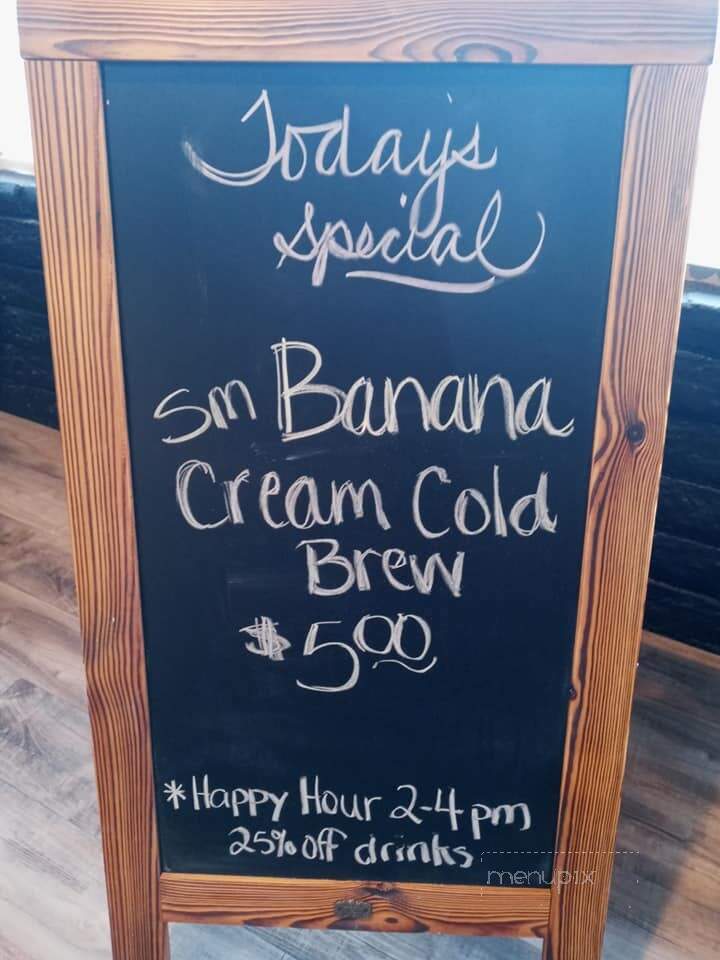 Today's
Special
Sm Banana
Cream Cold
Brew
$5.00
*Happy Hour 2-4 pm
25% off drinks
menupix